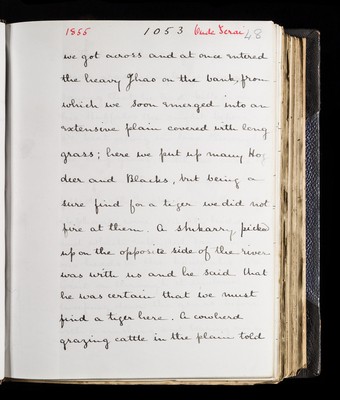 1855 1053 Oude Terai 48
we got across and at once entered
the heavy Jhao on the bank, from
which we soon emerged into an
extensive plain covered with long
grass; here we put up many Hog
deer and Blacks, but being a
sure find for a tiger we did not
fire at them. A shikarry, picked
up on the opposite side of the river
was with us and he said that
he was certain that we must
find a tiger here. A cowherd
grazing cattle in the plain told